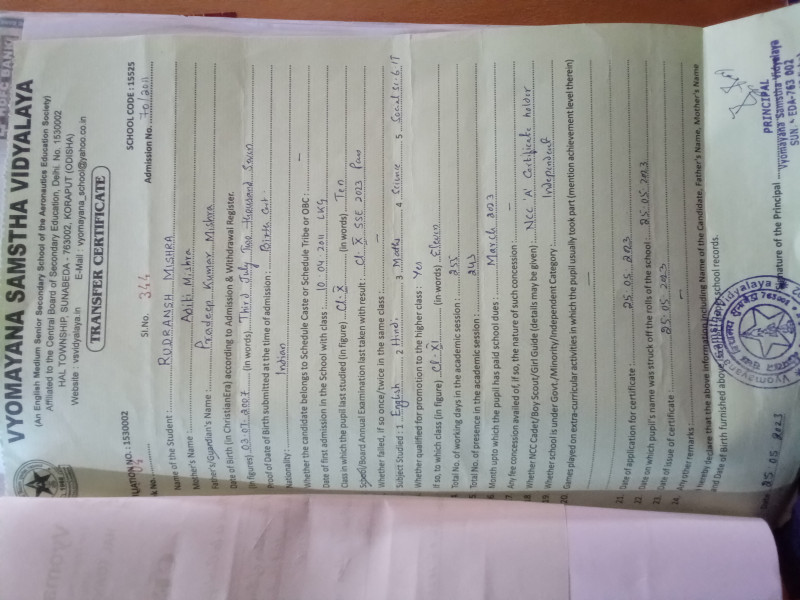 VYOMAYANA SAMSTHA VIDYALAYA
(An English Medium Senior Secondary School of the Aeronautics Education Society)
Affiliated to the Central Board of Secondary Education, Delhi. No. 1530002
HAL TOWNSHIP, SUNABEDA - 763002, KORAPUT (ODISHA)
Website : vsvidyalaya.in E-Mail : vyomayana_school@yahoo.co.in
TRANSFER CERTIFICATE
NO. : 1530002 SCHOOL CODE : 15525
k No. Sl.No. 344 Admission No. 70/2011
Name of the Student : RUDRANSH MISHRA
Mother's Name : Aditi Mishra
Father's/Guardian's Name : Pradeep Kumar Mishra
Date of Birth (in ChristianEra) according to Admission & Withdrawal Register.
(in figures) 03-07-2007 (in words) Third July Two thousand Seven
Proof of Date of Birth submitted at the time of admission : Birth Cert.
Nationality : Indian
Whether the candidate belongs to Schedule Caste or Schedule Tribe or OBC : —
Date of first admission in the School with class : 10.04.2011 LKG
Class in which the pupil last studied (in figure) Cl-X (in words) Ten
School/Board Annual Examination last taken with result : Cl-X SSE 2023 Pass
Whether failed, if so once/twice in the same class : —
Subject Studied : 1 English 2 Hindi 3 Maths 4 Science 5 Social Sc. 6 IT
Whether qualified for promotion to the higher class : Yes
If so, to which class (in figure) Cl-XI (in words) Eleven
Total No. of working days in the academic session : 255
Total No. of presence in the academic session : 243
16. Month upto which the pupil has paid school dues : March 2023
17. Any fee concession availed of, if so, the nature of such concession : —
18. Whether NCC Cadet/Boy Scout/Girl Guide (details may be given) : NCC 'A' Certificate holder
19. Whether school is under Govt./Minority/Independent Category : Independent
20. Games played on extra-curricular activities in which the pupil usually took part (mention achievement level therein)
—
21. Date of application for certificate : 25.05.2023
22. Date on which pupil's name was struck off the rolls of the school : 25.05.2023
23. Date of issue of certificate : 25.05.2023
24. Any other remarks : —
I hereby declare that the above information including Name of the Candidate, Father's Name, Mother's Name
and Date of Birth furnished above school records.
Date 25.05.2023 Signature of the Principal
PRINCIPAL
Vyomayana Samstha Vidyalaya
SUNABEDA-763 002